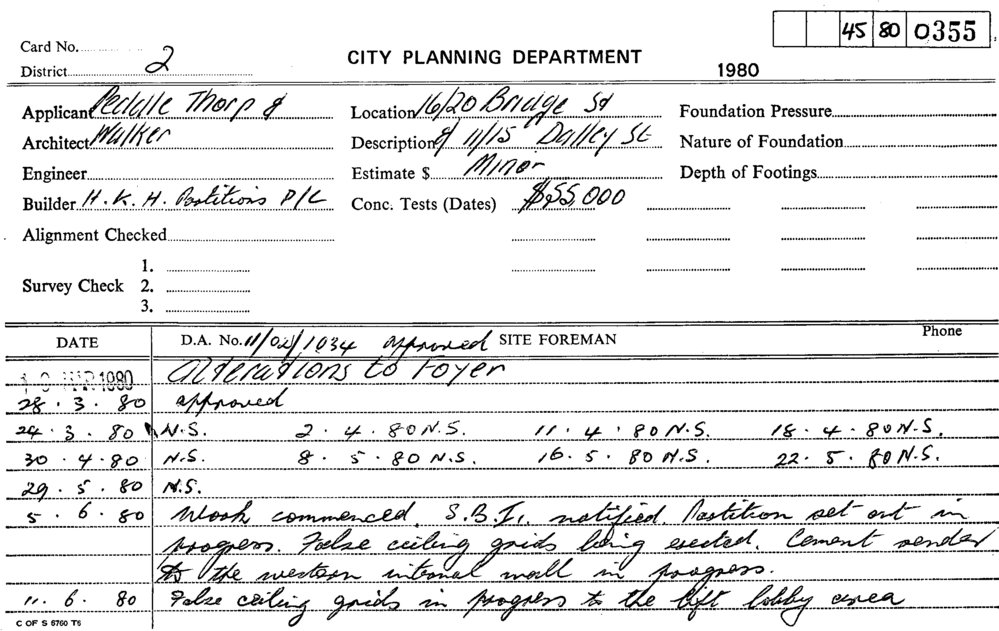 45 80 0355
Card No.
District 2
CITY PLANNING DEPARTMENT
1980
Applicant Peddle Thorp &
Architect Walker
Engineer
Builder H.K.H. Partitions P/L
Alignment Checked
Survey Check 1.
2.
3.
Location 16/20 Bridge St
Description & 11/15 Dalley St
Estimate $ Minor
Conc. Tests (Dates) $55,000
Foundation Pressure
Nature of Foundation
Depth of Footings
DATE D.A. No. 11/02/1034 approved SITE FOREMAN Phone
MAR 1980 Alterations to Foyer
28 . 3 . 80 approved
24 . 3 . 80 N.S. 2 . 4 . 80 N.S. 11 . 4 . 80 N.S. 18 . 4 . 80 N.S.
30 . 4 . 80 N.S. 8 . 5 . 80 N.S. 16 . 5 . 80 N.S. 22 . 5 . 80 N.S.
29 . 5 . 80 N.S.
5 . 6 . 80 Work commenced. S.B.I. notified. Partition set out in
progress. False ceiling grids being erected. Cement render
to the western internal wall in progress.
11 . 6 . 80 False ceiling grids in progress to the lift lobby area
C OF S 6760 T6